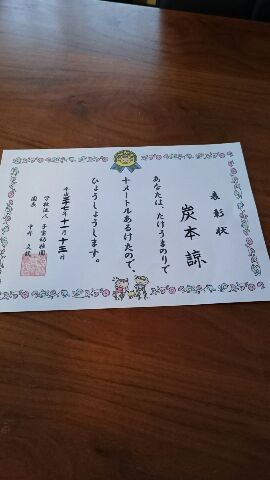 表彰状
炭本諒
あなたは、たけうまのりで
十メートルあるけたので、
ひょうしょうします。
平成二十七年十一月十三日
学校法人 子宝幼稚園
園長 中井